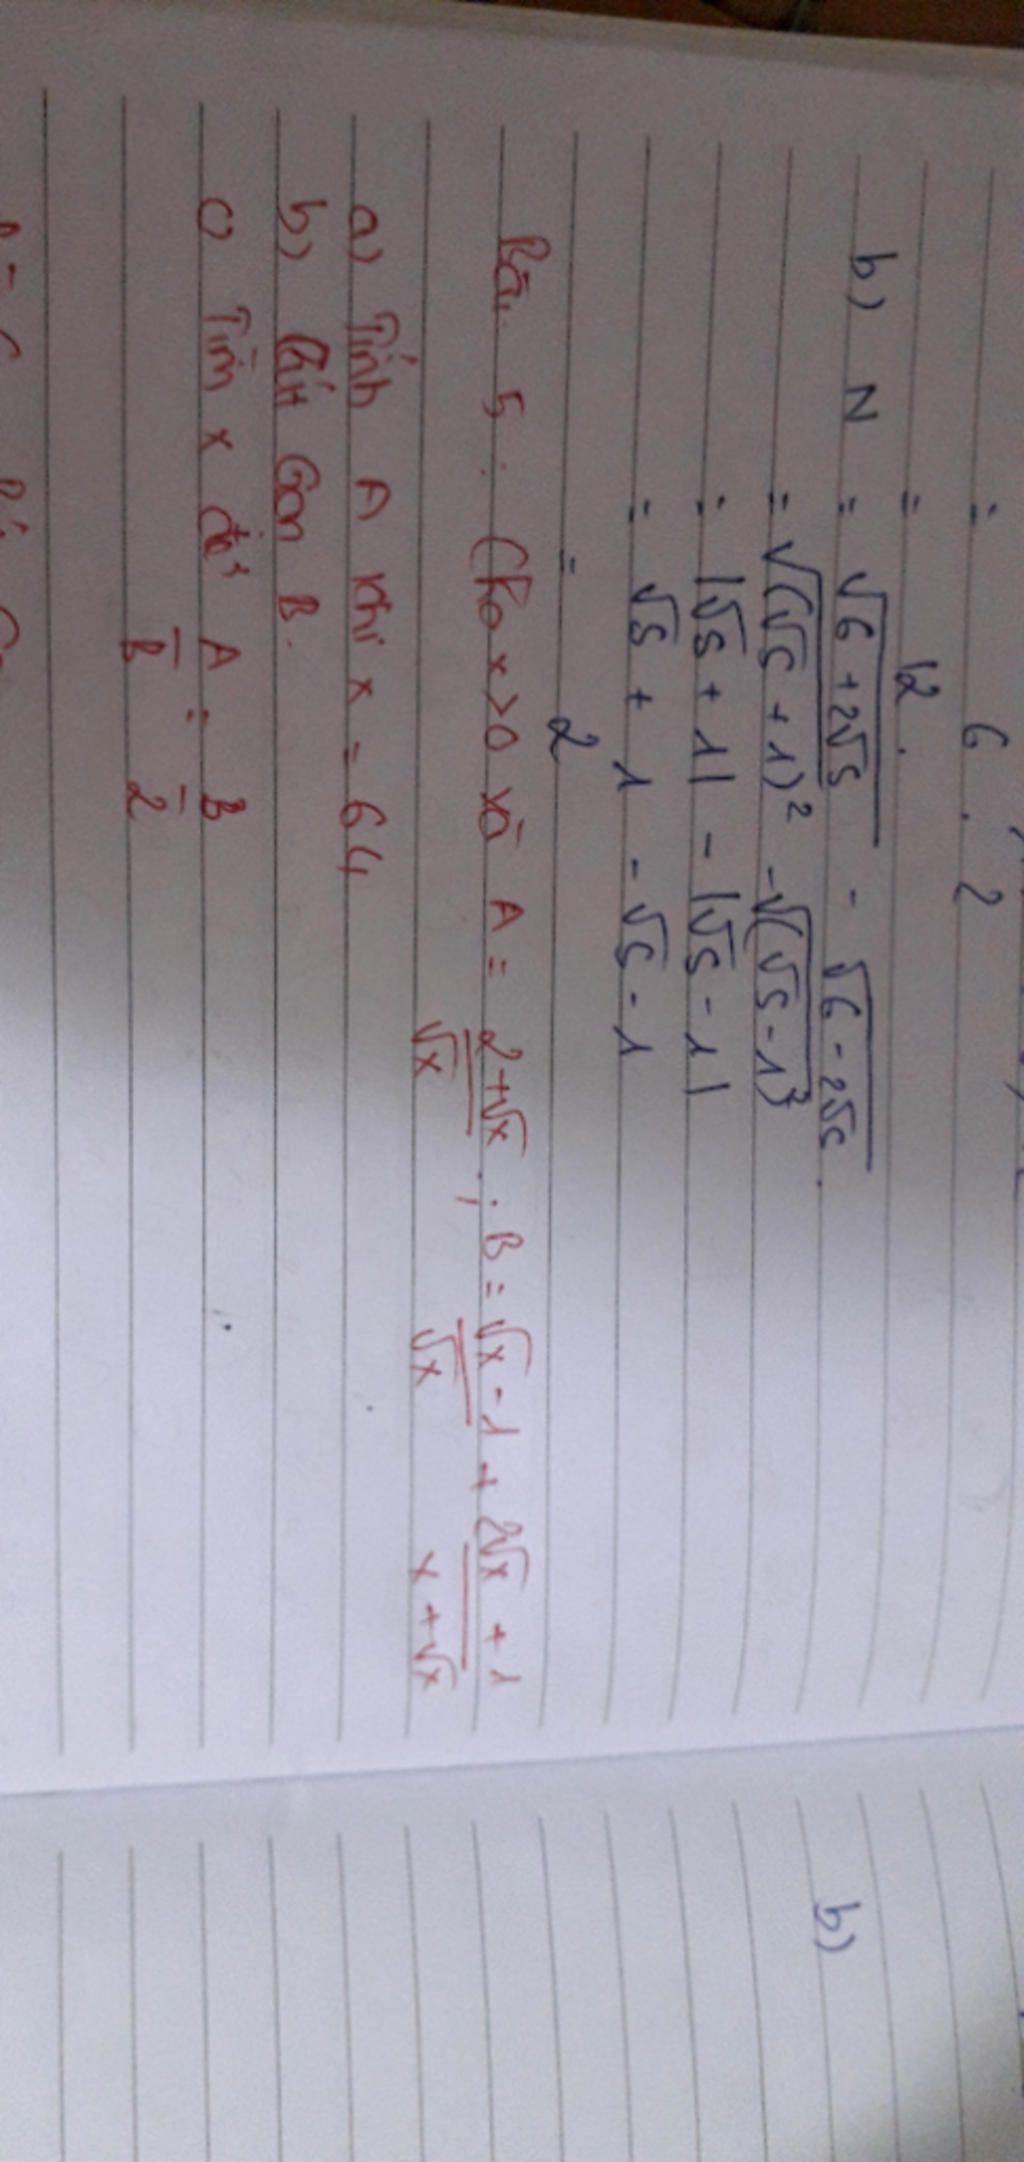 = 6 . 2
= 12 .
b) N = √(6 + 2√5) - √(6 - 2√5) .
= √(√5 + 1)² - √(√5 - 1)²
= |√5 + 1| - |√5 - 1|
= √5 + 1 - √5 - 1
= 2
Bài 5 : Cho x > 0 và A = (2+√x)/√x ; B = (√x - 1)/√x + (2√x + 1)/(x + √x)
a) Tính A khi x = 64
b) Rút Gọn B.
c) Tìm x để A/B = B/2
b)